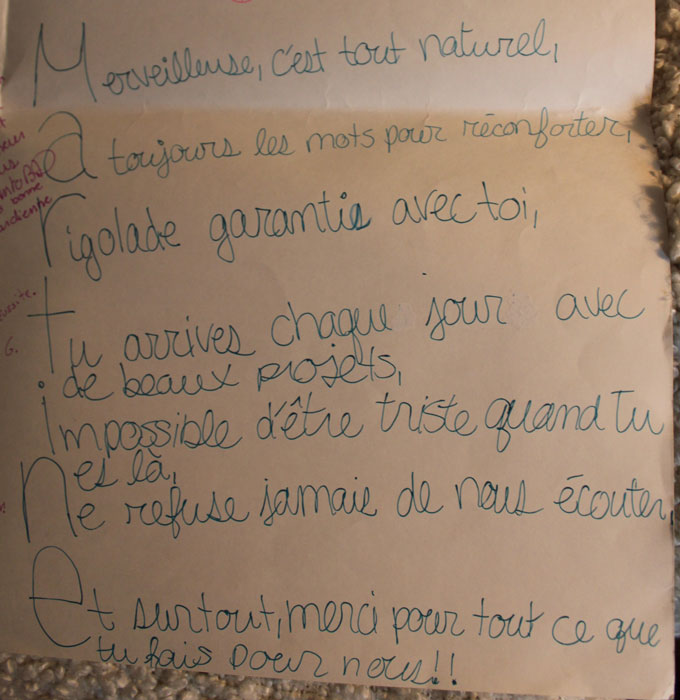 Merveilleuse, c'est tout naturel,
a toujours les mots pour réconforter,
rigolade garantie avec toi,
tu arrives chaque jour avec
de beaux projets,
impossible d'être triste quand tu
es là,
ne refuse jamais de nous écouter,
et surtout, merci pour tout ce que
tu fais pour nous!!